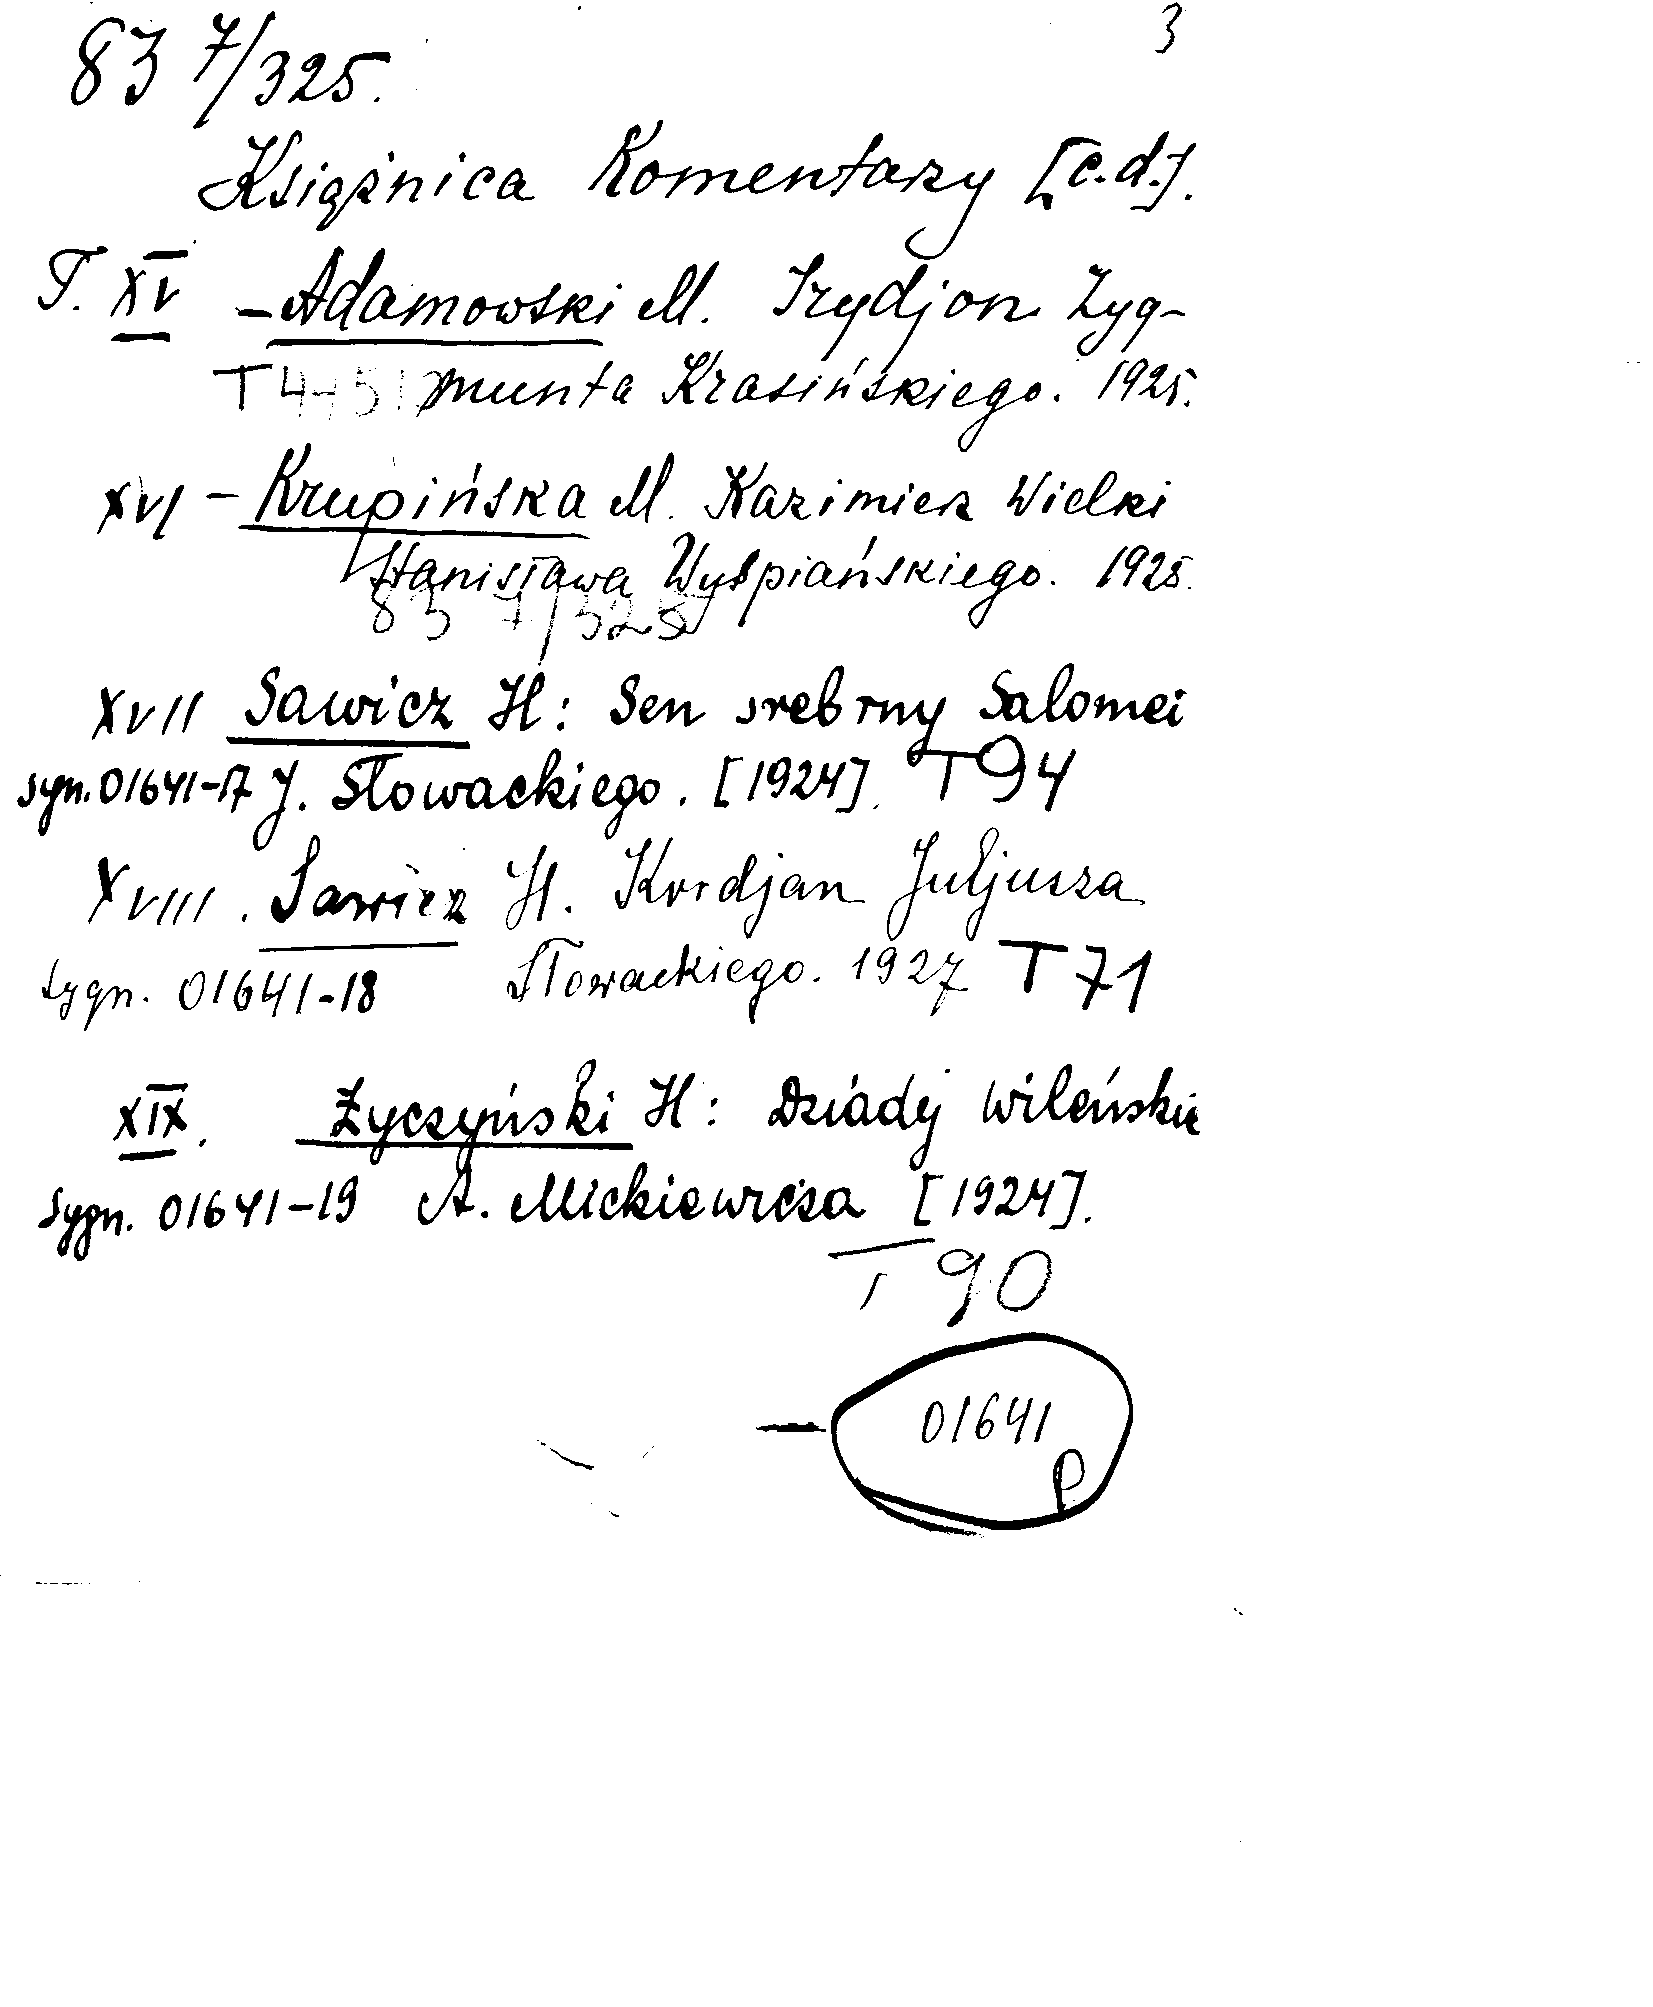 3
83 7/325.
Książnica Komentarzy [c.d.].
T. XV – Adamowski M. Irydjon Zyg-
munta Krasińskiego. 1925.
XVI – Krupińska M. Kazimierz Wielki
Stanisława Wyspiańskiego. 1925.
83 7/325
XVII Sawicz H: Sen srebrny Salomei
syn. 01641-17 J. Słowackiego. [1924]. T94
XVIII. Sawicz H. Kordjan Juljusza
sygn. 01641-18 Słowackiego. 1927 T71
XIX. Życzyński H: Dziady wileńskie
sygn. 01641-19 A. Mickiewicza [1924].
T 90
– 01641
P